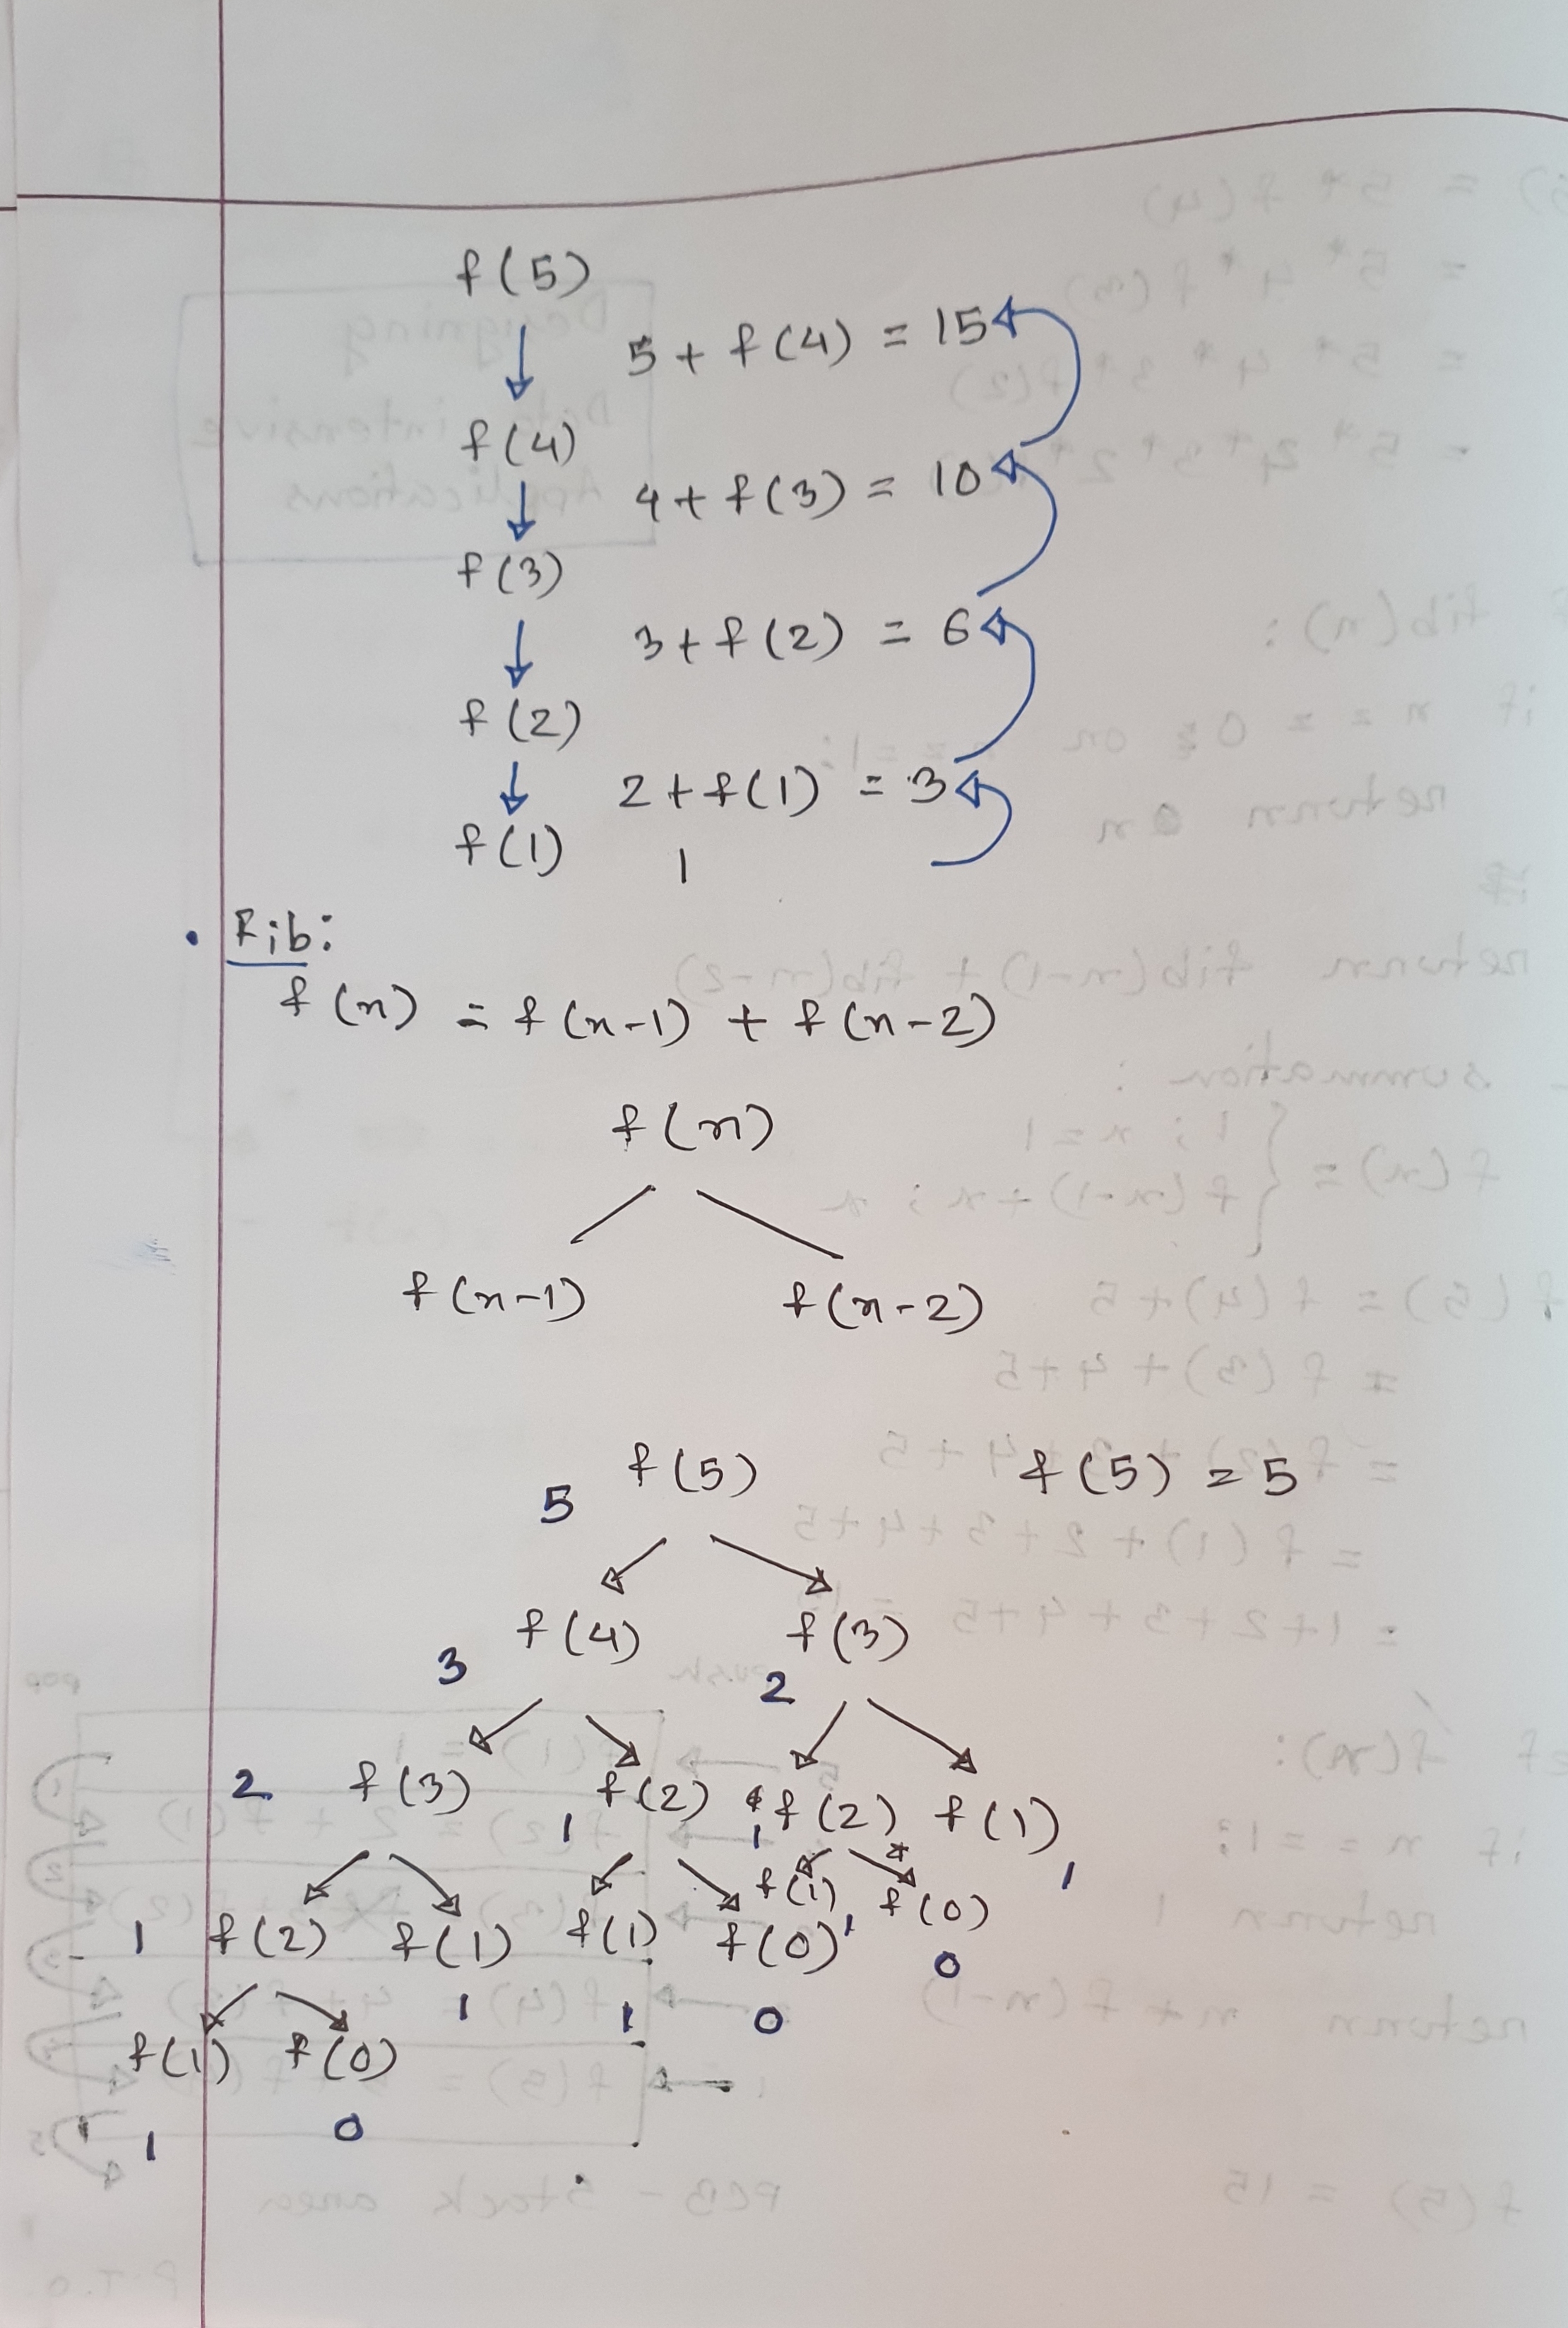 f(5)
5 + f(4) = 15
f(4)
4 + f(3) = 10
f(3)
3 + f(2) = 6
f(2)
2 + f(1) = 3
f(1) 1
• Fib:
f(n) = f(n-1) + f(n-2)
f(n)
f(n-1) f(n-2)
f(5) f(5) = 5
5
f(4) f(3)
3 2
2 f(3) f(2) f(2) f(1)
1 1 1
f(1) f(0)
1 f(2) f(1) f(1) f(0) 1
0
1 1 0
f(1) f(0)
1 0